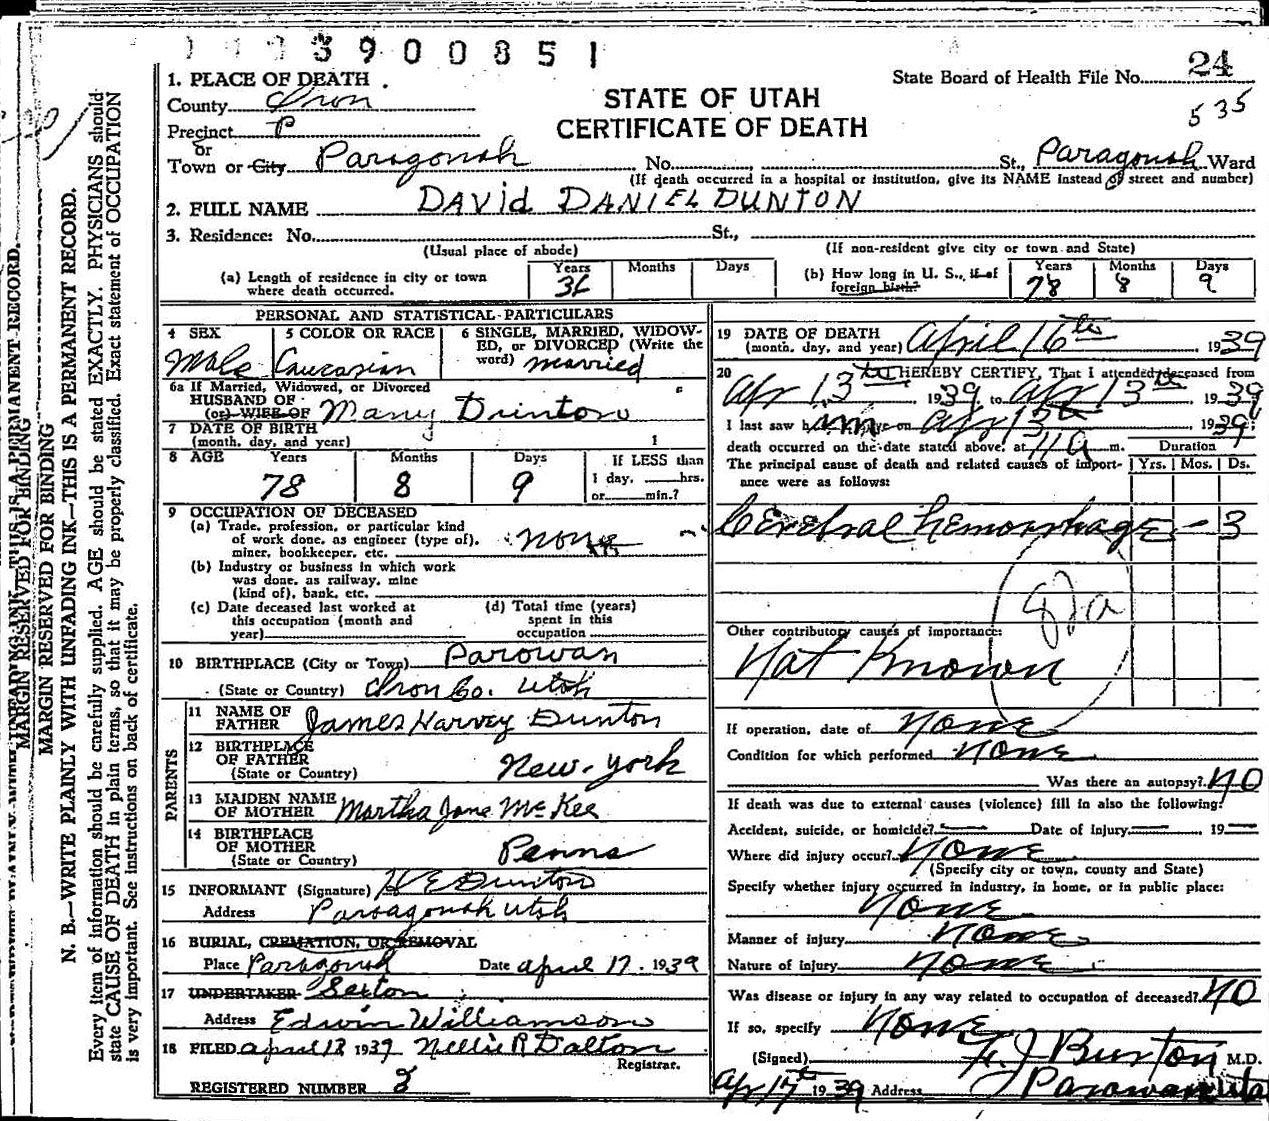 3900851
State Board of Health File No. 24
535
STATE OF UTAH
CERTIFICATE OF DEATH
1. PLACE OF DEATH
County Iron
Precinct P
or
Town or City Paragonah No. St., Paragonah Ward
(If death occurred in a hospital or institution, give its NAME instead of street and number)
2. FULL NAME DAVID DANIEL DUNTON
3. Residence: No. St.,
(Usual place of abode) (If non-resident give city or town and State)
(a) Length of residence in city or town where death occurred. Years 36 Months Days
(b) How long in U. S., if of foreign birth? Years 78 Months 8 Days 9
PERSONAL AND STATISTICAL PARTICULARS
4 SEX Male
5 COLOR OR RACE Caucasian
6 SINGLE, MARRIED, WIDOW-
ED, or DIVORCED (Write the
word) married
6a If Married, Widowed, or Divorced
HUSBAND OF
(or) WIFE OF Mary Dunton
7 DATE OF BIRTH
(month, day, and year)
8 AGE Years 78 Months 8 Days 9
If LESS than
1 day, hrs.
or min.?
9 OCCUPATION OF DECEASED
(a) Trade, profession, or particular kind
of work done, as engineer (type of),
miner, bookkeeper, etc. none
(b) Industry or business in which work
was done, as railway, mine
(kind of), bank, etc.
(c) Date deceased last worked at
this occupation (month and
year)
(d) Total time (years)
spent in this
occupation
10 BIRTHPLACE (City or Town) Parowan
(State or Country) Iron Co. Utah
PARENTS
11 NAME OF
FATHER James Harvey Dunton
12 BIRTHPLACE
OF FATHER
(State or Country) New-york
13 MAIDEN NAME
OF MOTHER Martha Jane McKee
14 BIRTHPLACE
OF MOTHER
(State or Country) Penna
15 INFORMANT (Signature) H E Dunton
Address Paragonah Utah
16 BURIAL, CREMATION, OR REMOVAL
Place Paragonah Date April 17. 1939
17 UNDERTAKER Sexton
Address Edwin Williamson
18 FILED April 18 1939 Nellie R Dalton
Registrar.
REGISTERED NUMBER 3
19 DATE OF DEATH
(month, day, and year) April 16th, 1939
20 I HEREBY CERTIFY, That I attended deceased from
Apr 13th 1939 to Apr 13th 1939
I last saw him alive on Apr 13th 1939;
death occurred on the date stated above, at 11 a m.
Duration
The principal cause of death and related causes of import-
ance were as follows:
Yrs. Mos. Ds.
Cerebral hemorrhage - 3
82a
Other contributory causes of importance:
Not Known
If operation, date of None
Condition for which performed None
Was there an autopsy? NO
If death was due to external causes (violence) fill in also the following:
Accident, suicide, or homicide? Date of Injury , 19
Where did injury occur? None
(Specify city or town, county and State)
Specify whether injury occurred in industry, in home, or in public place:
None
Manner of injury None
Nature of injury None
Was disease or injury in any way related to occupation of deceased? NO
If so, specify None
(Signed) J Burton M.D.
Apr 17th 1939 Address Parowan Utah
MARGIN RESERVED FOR BINDING
N. B.—WRITE PLAINLY WITH UNFADING INK—THIS IS A PERMANENT RECORD.
Every item of information should be carefully supplied. AGE should be stated EXACTLY. PHYSICIANS should
state CAUSE OF DEATH in plain terms, so that it may be properly classified. Exact statement of OCCUPATION
is very important. See instructions on back of certificate.